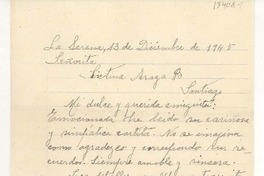 La Serena, 13 de Diciembre de 1945
Señorita
Araya
Santiago
Mi dulce y querida amiguita:
Emocionada he leído su cariñosa
y simpática cartita. No se imagina
como agradezco y correspondo sus re-
cuerdos. Siempre amable y sincera.